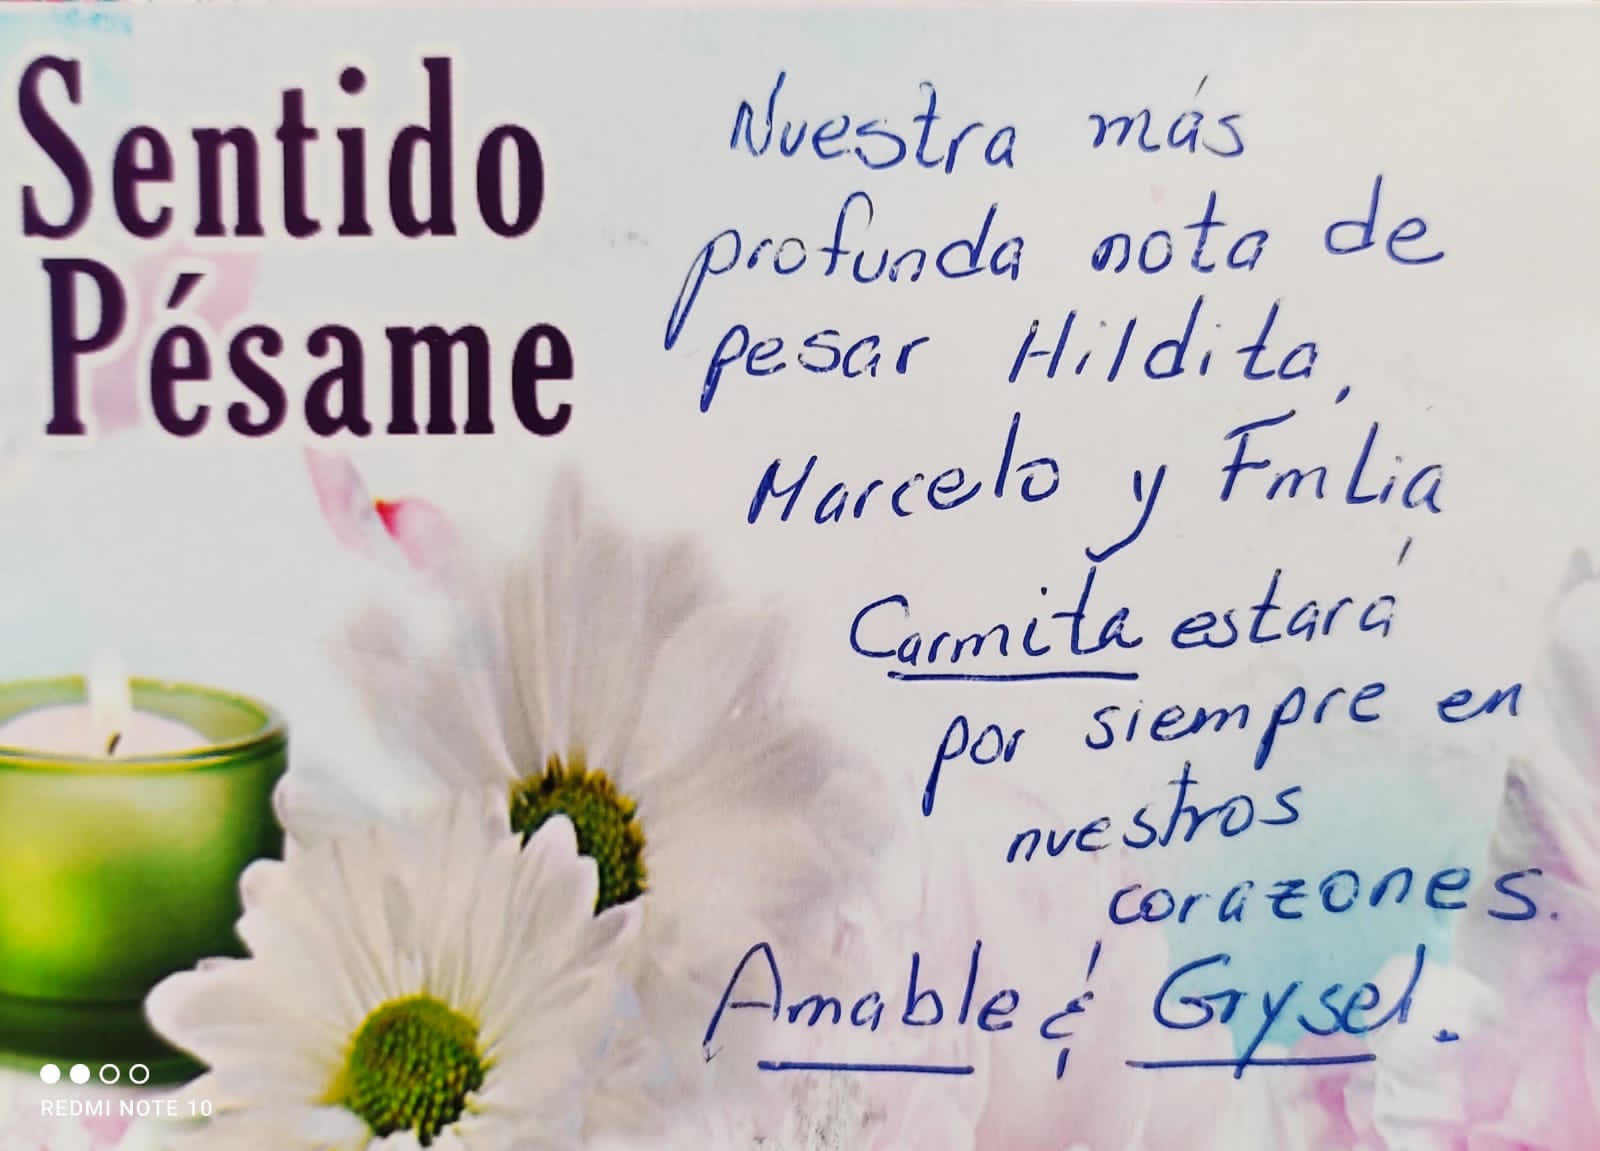 Sentido
Pésame
Nuestra más
profunda nota de
pesar Hildita,
Marcelo y Fmlia
Carmita estará
por siempre en
nuestros
corazones.
Amable & Grysel.
REDMI NOTE 10